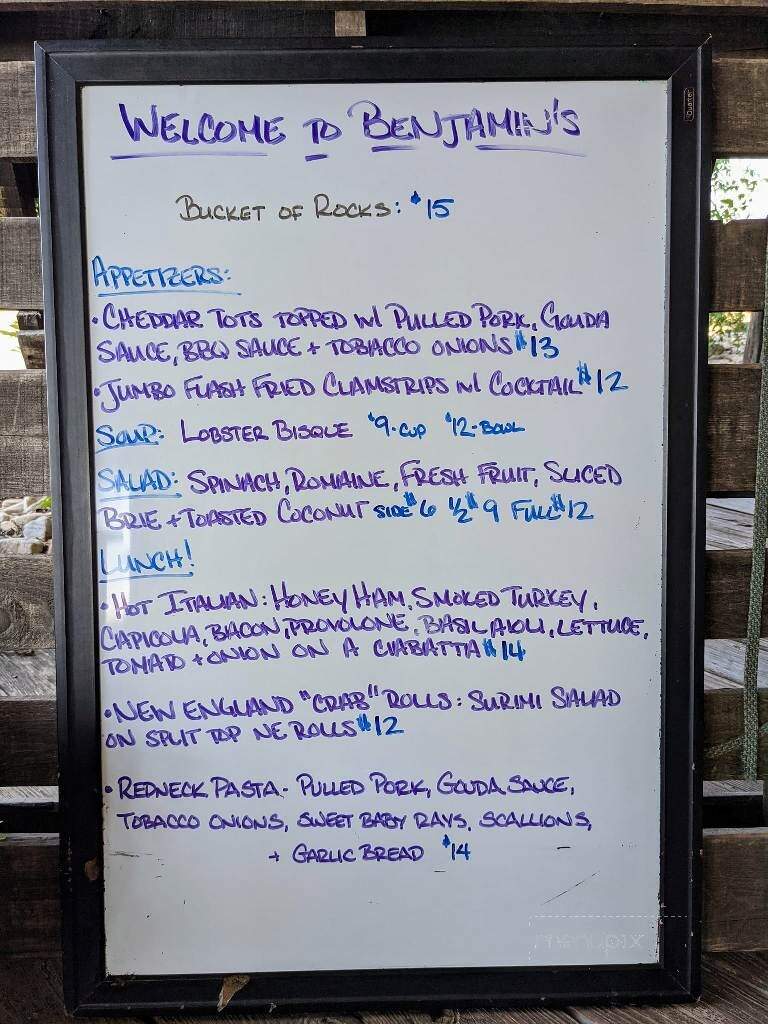 WELCOME TO BENJAMIN'S
BUCKET OF ROCKS: $15
APPETIZERS:
• CHEDDAR TOTS TOPPED W/ PULLED PORK, GOUDA
SAUCE, BBQ SAUCE + TOBACCO ONIONS $13
• JUMBO FLASH FRIED CLAMSTRIPS W/ COCKTAIL $12
SOUP: LOBSTER BISQUE $9-CUP $12-BOWL
SALAD: SPINACH, ROMAINE, FRESH FRUIT, SLICED
BRIE + TOASTED COCONUT SIDE $6 1/2 $9 FULL $12
LUNCH!
• HOT ITALIAN: HONEY HAM, SMOKED TURKEY,
CAPICOLLA, BACON, PROVOLONE, BASIL AIOLI, LETTUCE,
TOMATO + ONION ON A CIABATTA $14
• NEW ENGLAND "CRAB" ROLLS: SURIMI SALAD
ON SPLIT TOP NE ROLLS $12
• REDNECK PASTA - PULLED PORK, GOUDA SAUCE,
TOBACCO ONIONS, SWEET BABY RAYS, SCALLIONS,
+ GARLIC BREAD $14
Quartet
menupix